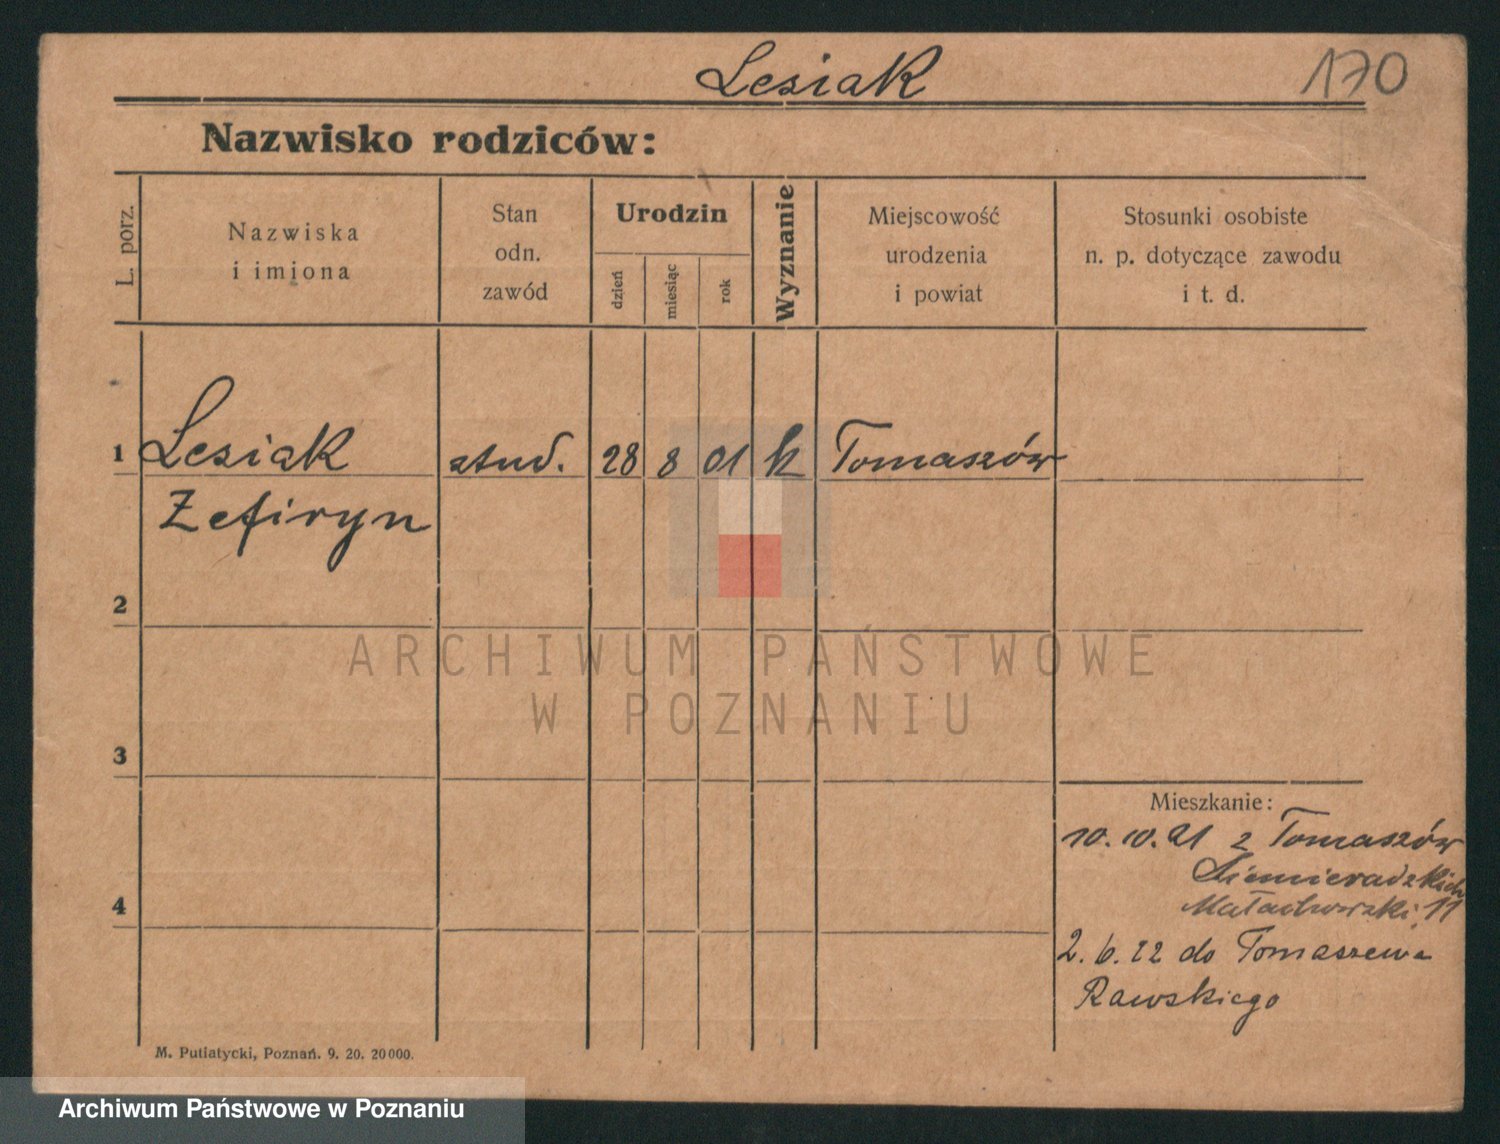 Lesiak
170
Nazwisko rodziców:
L. porz.
Nazwiska
i imiona
Stan
odn.
zawód
Urodzin
dzień
miesiąc
rok
Wyznanie
Miejscowość
urodzenia
i powiat
Stosunki osobiste
n. p. dotyczące zawodu
i t. d.
1 Lesiak stud. 28 8 01 k Tomaszów
Zefiryn
2
ARCHIWUM PAŃSTWOWE
W POZNANIU
3
Mieszkanie:
10.10.21 z Tomaszów
Siemieradzkich
11
4
2.6.22 do Tomaszewa
Rawskiego
M. Putiatycki, Poznań. 9. 20. 20000.
Archiwum Państwowe w Poznaniu